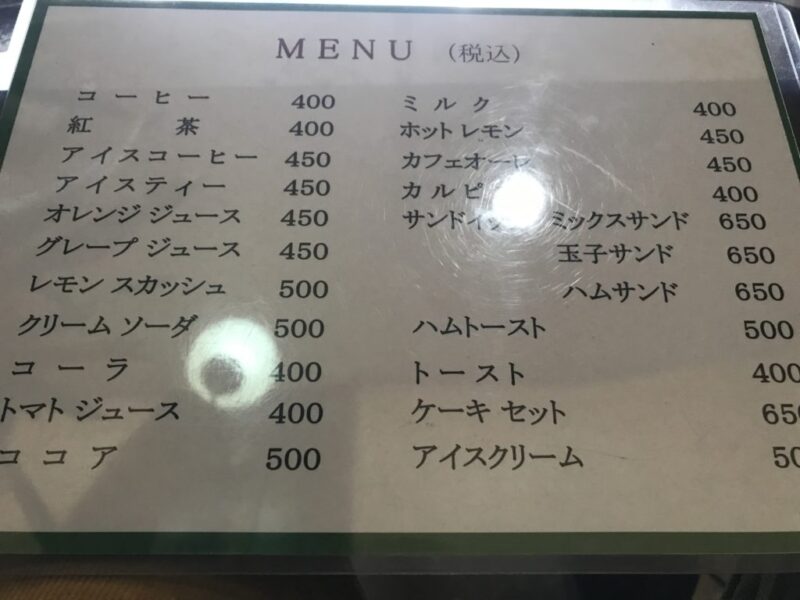 MENU （税込）
コーヒー 400
紅茶 400
アイスコーヒー 450
アイスティー 450
オレンジ ジュース 450
グレープ ジュース 450
レモン スカッシュ 500
クリーム ソーダ 500
コーラ 400
トマト ジュース 400
ココア 500
ミルク 400
ホット レモン 450
カフェオーレ 450
カルピ 400
サンドイッ ミックスサンド 650
玉子サンド 650
ハムサンド 650
ハムトースト 500
トースト 400
ケーキ セット 650
アイスクリーム 50